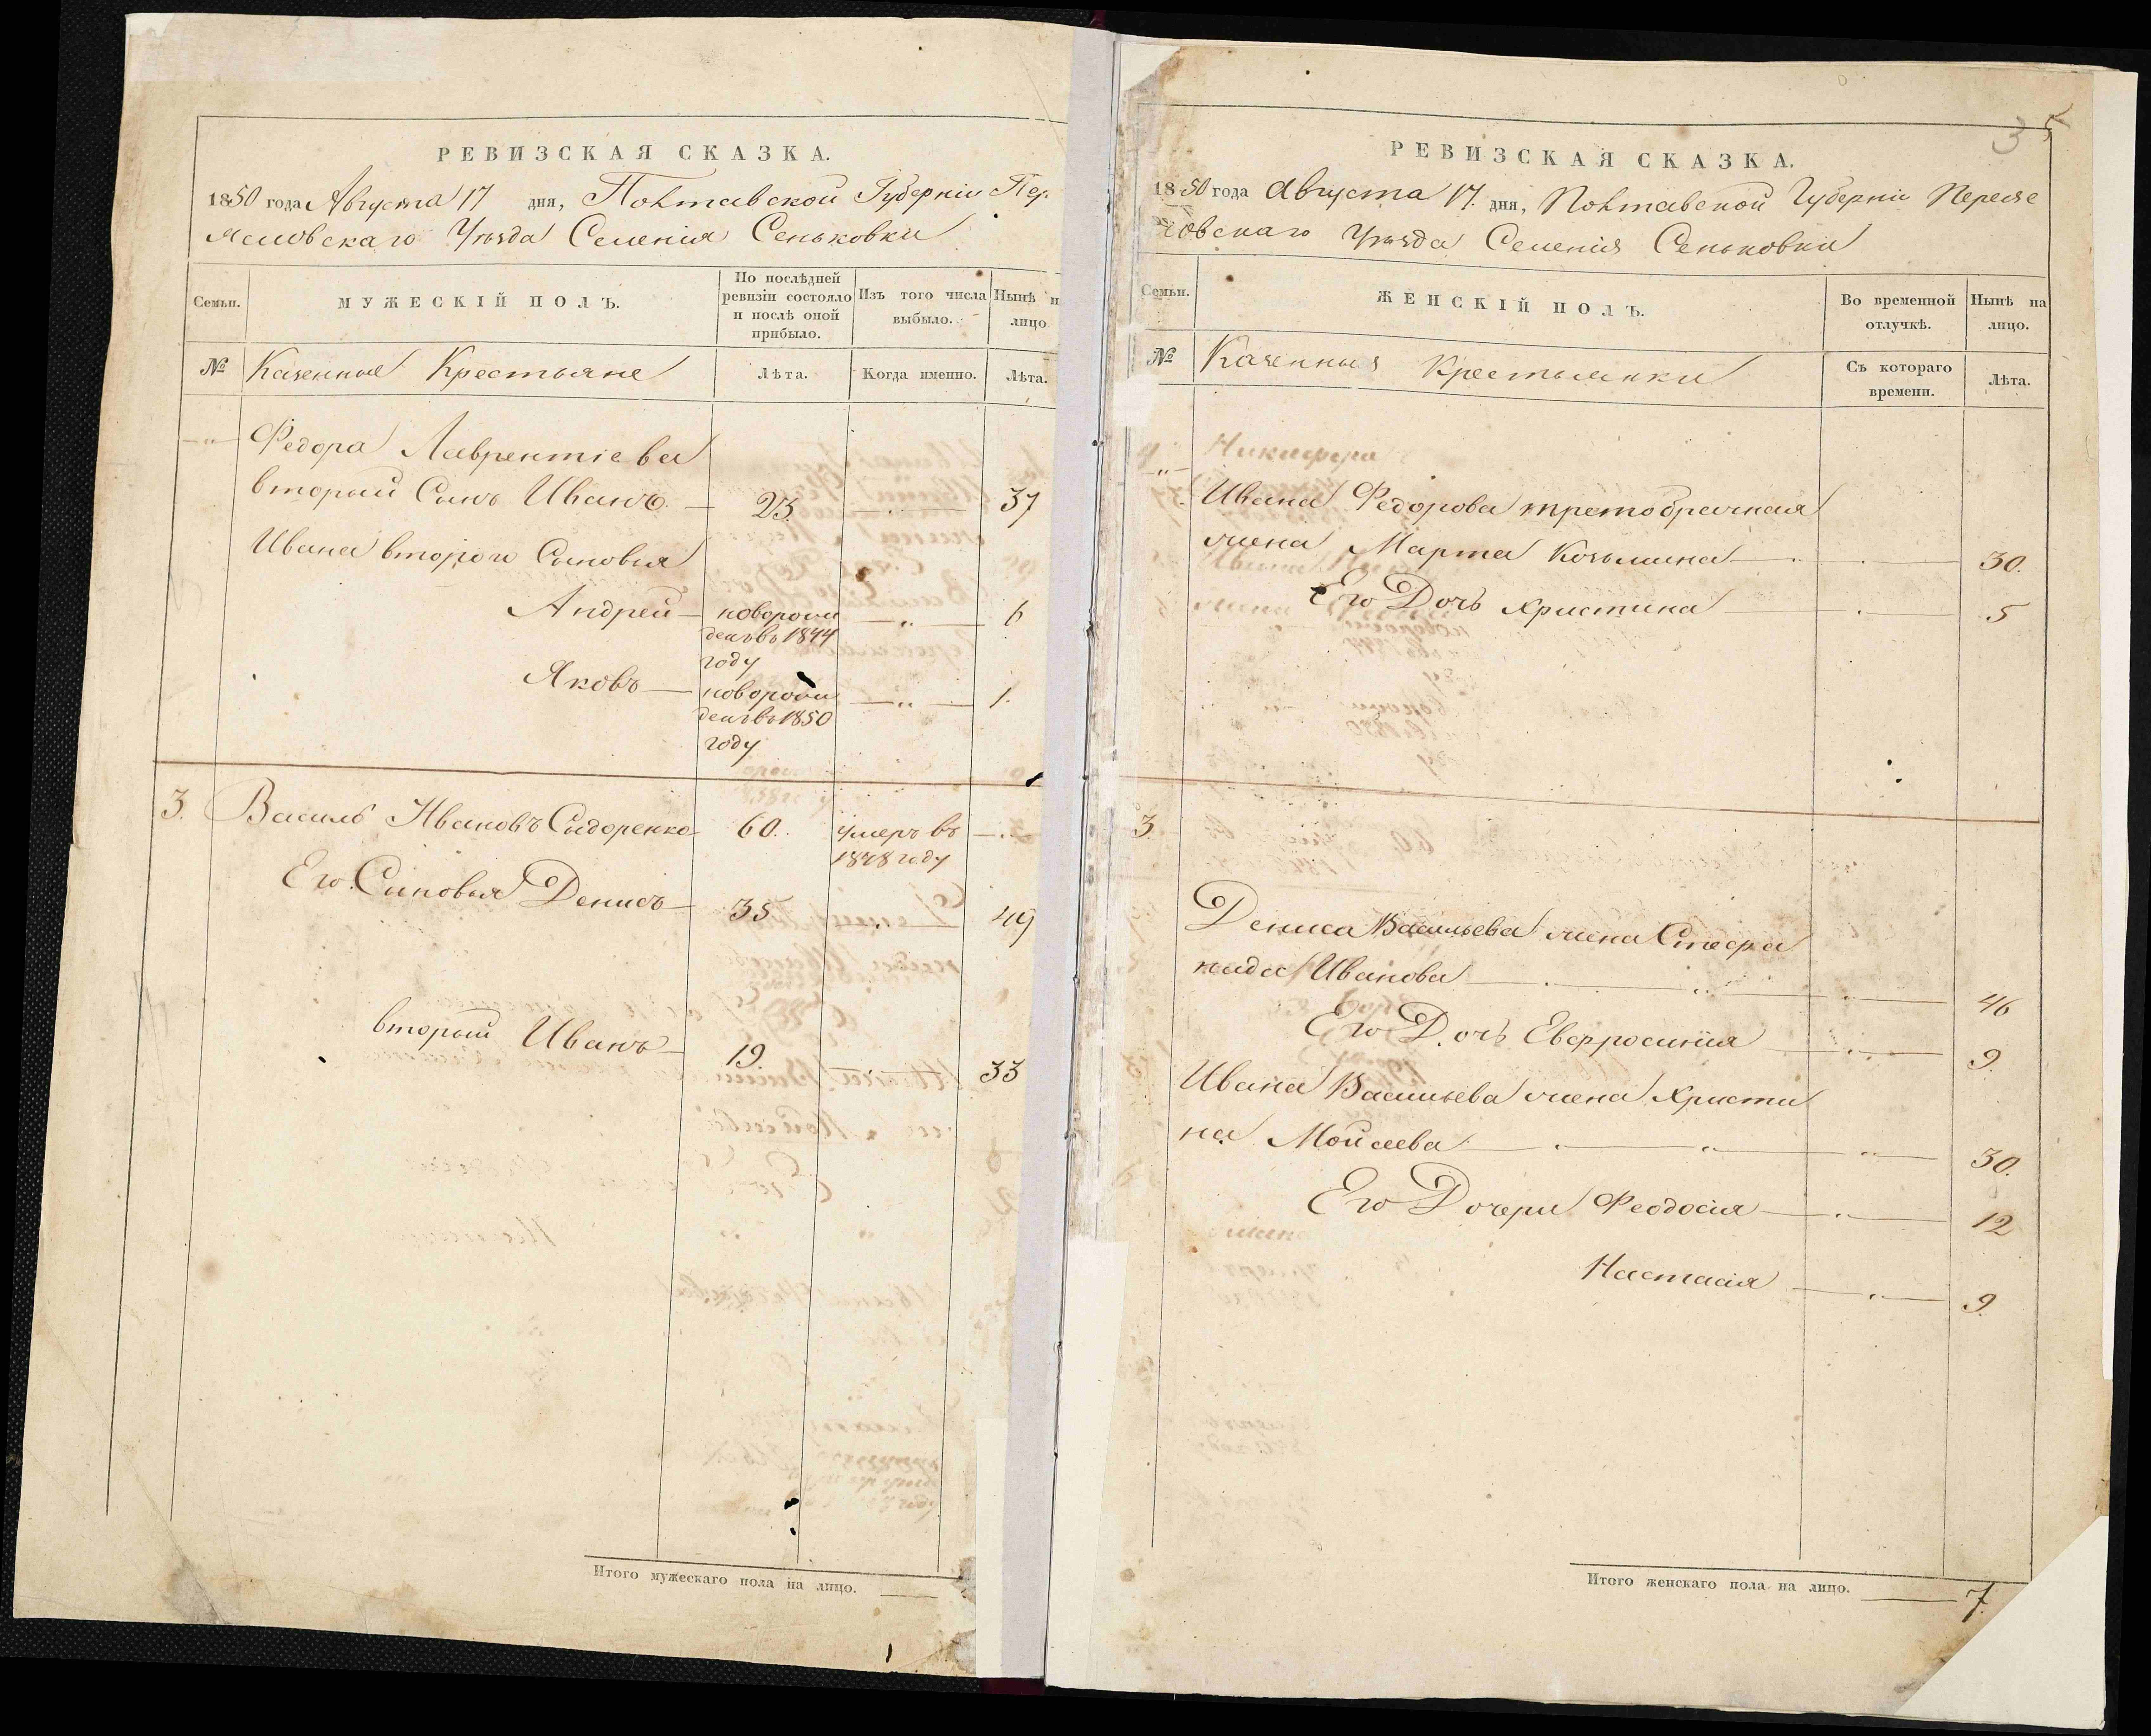 РЕВИЗСКАЯ СКАЗКА.
1850 года Августа 17 дня, Полтавской Губерніи Пер-
ясловскаго Уѣзда Селенія Сеньковки
Семьи.
МУЖЕСКІЙ ПОЛЪ.
По послѣдней
ревизіи состояло
и послѣ оной
прибыло.
Изъ того числа
выбыло.
Нынѣ н
лицо
№
Казенные Крестьяне
Лѣта.
Когда именно.
Лѣта.
Федора Лаврентіева
вторый Сынъ Иванъ 23. 37
Ивана второго Сыновья
Андрей новорож 6
денъ въ 1844
году
Яковъ новорож 1.
денъ въ 1850
году
3. Василь Ивановъ Сыдоренко 60. умеръ въ
1848 году
Его Сыновья Денисъ 35 49
вторый Иванъ 19. 33
Итого мужескаго пола на лицо.
3 5
РЕВИЗСКАЯ СКАЗКА.
1850 года Августа 17. дня, Полтавской Губерніи Переяс
ловскаго Уѣзда Селенія Сеньковки
Семьи.
ЖЕНСКІЙ ПОЛЪ.
Во временной
отлучкѣ.
Нынѣ на
лицо.
№
Казенныя Крестьянки
Съ котораго
времени.
Лѣта.
Ивана Федорова третобрачная
жена Марта Козьмина 30.
Его Дочь Христина 5
3.
Дениса Васильева жена Стефа
нида Иванова 46
Его Дочь Евфросинія 9.
Ивана Васильева жена Христи
на Мойсеева 30.
Его Дочери Феодосія 12
Настасія 9.
Итого женскаго пола на лицо. 7.